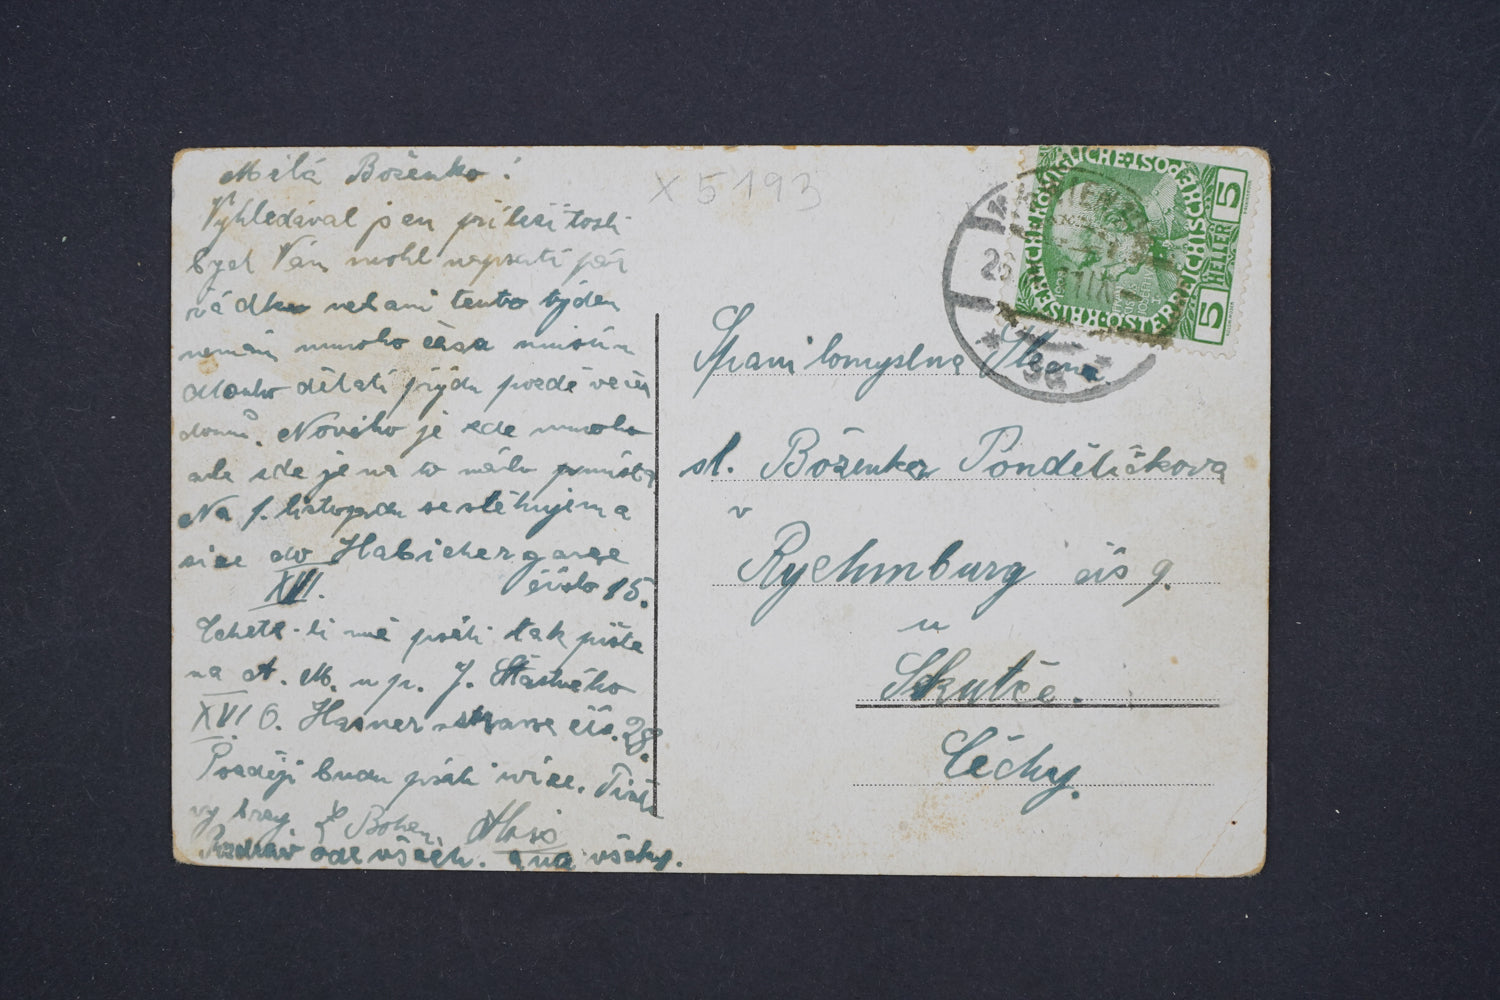 Milá Boženko!
Vyhledával jsem příležitosti
bych Vám mohl napsati pár
řádku neb ani tento týden
nemám mnoho času musím
dlouho dělati přijdu pozdě večer
domů. Nového je zde mnoho
ale zde je na to málo
Na 1. listopadu se stěhujem a
sice do Habichergasse
XVI. číslo 15.
Chcete-li mě psáti tak pište
na A. M. u p. J. Šťastného
XVI O. Hasner strasse čís. 28.
Později budu psáti více.
vy brzy S Bohem
Pozdrav ode všech. na všechny.
X 5193
5 HELLER 5
KAIS.KÖNIGLICHE ÖSTERREICHISCHE POST
Spanilomyslná
sl. Boženka Ponděličkova
v
Rychmburg čís 9.
u
Skutče.
Čechy.